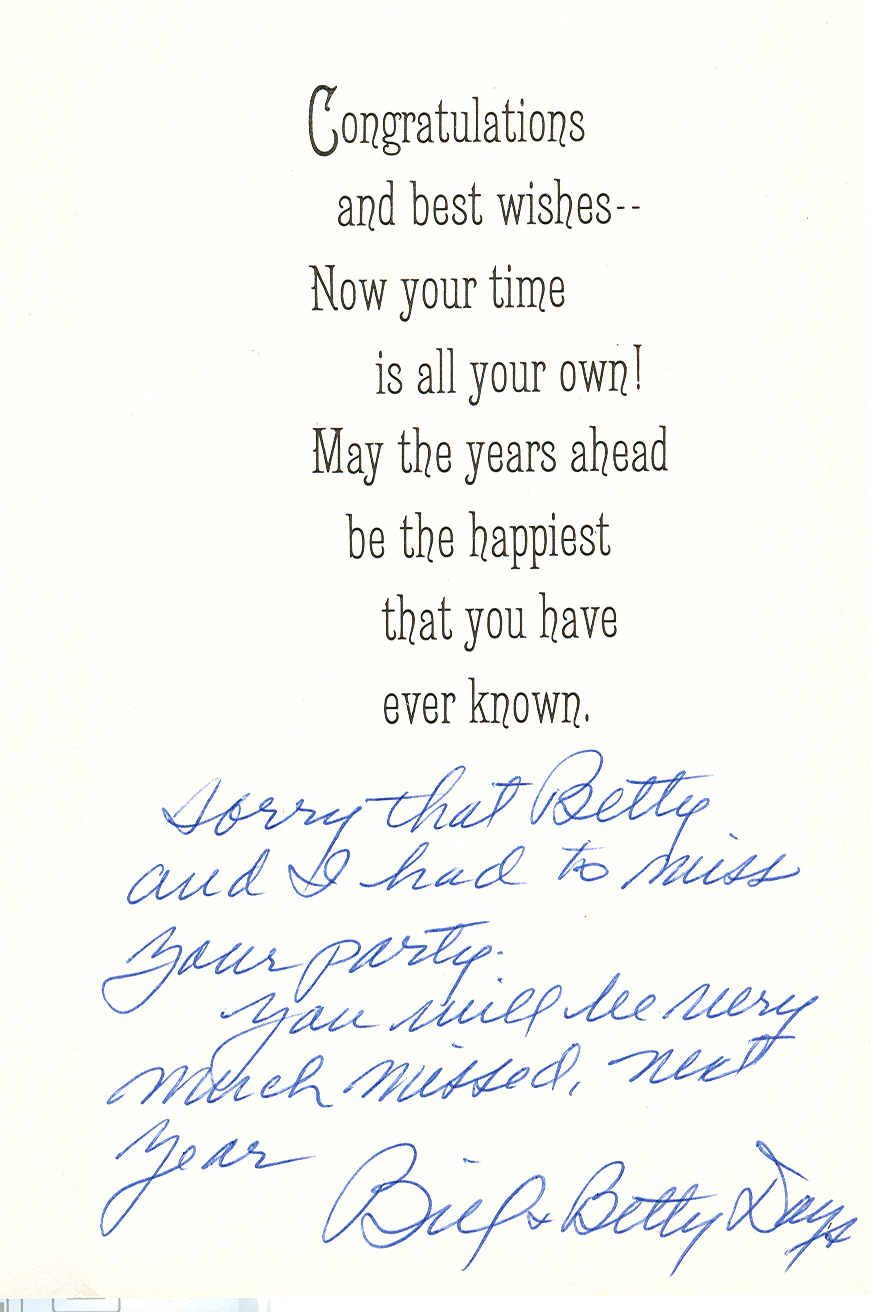 Congratulations
and best wishes--
Now your time
is all your own!
May the years ahead
be the happiest
that you have
ever known.
Sorry that Betty
and I had to miss
your party.
You will be very
much missed, next
year
Bill & Betty Days